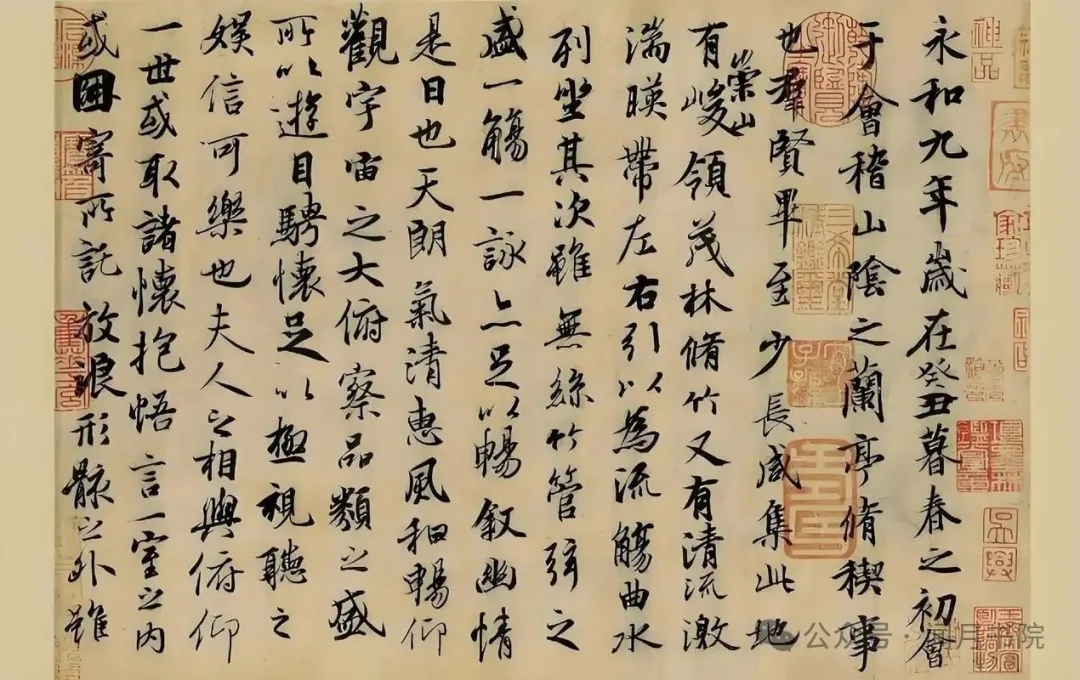 永和九年歲在癸丑暮春之初會
于會稽山陰之蘭亭脩稧事
也羣賢畢至少長咸集此地
有崇山峻領茂林脩竹又有清流激
湍暎帶左右引以為流觴曲水
列坐其次雖無絲竹管弦之
盛一觴一詠亦足以暢叙幽情
是日也天朗氣清惠風和暢仰
觀宇宙之大俯察品類之盛
所以遊目騁懷足以極視聽之
娛信可樂也夫人之相與俯仰
一世或取諸懷抱悟言一室之內
或因寄所託放浪形骸之外雖
神品
公众号·月书院